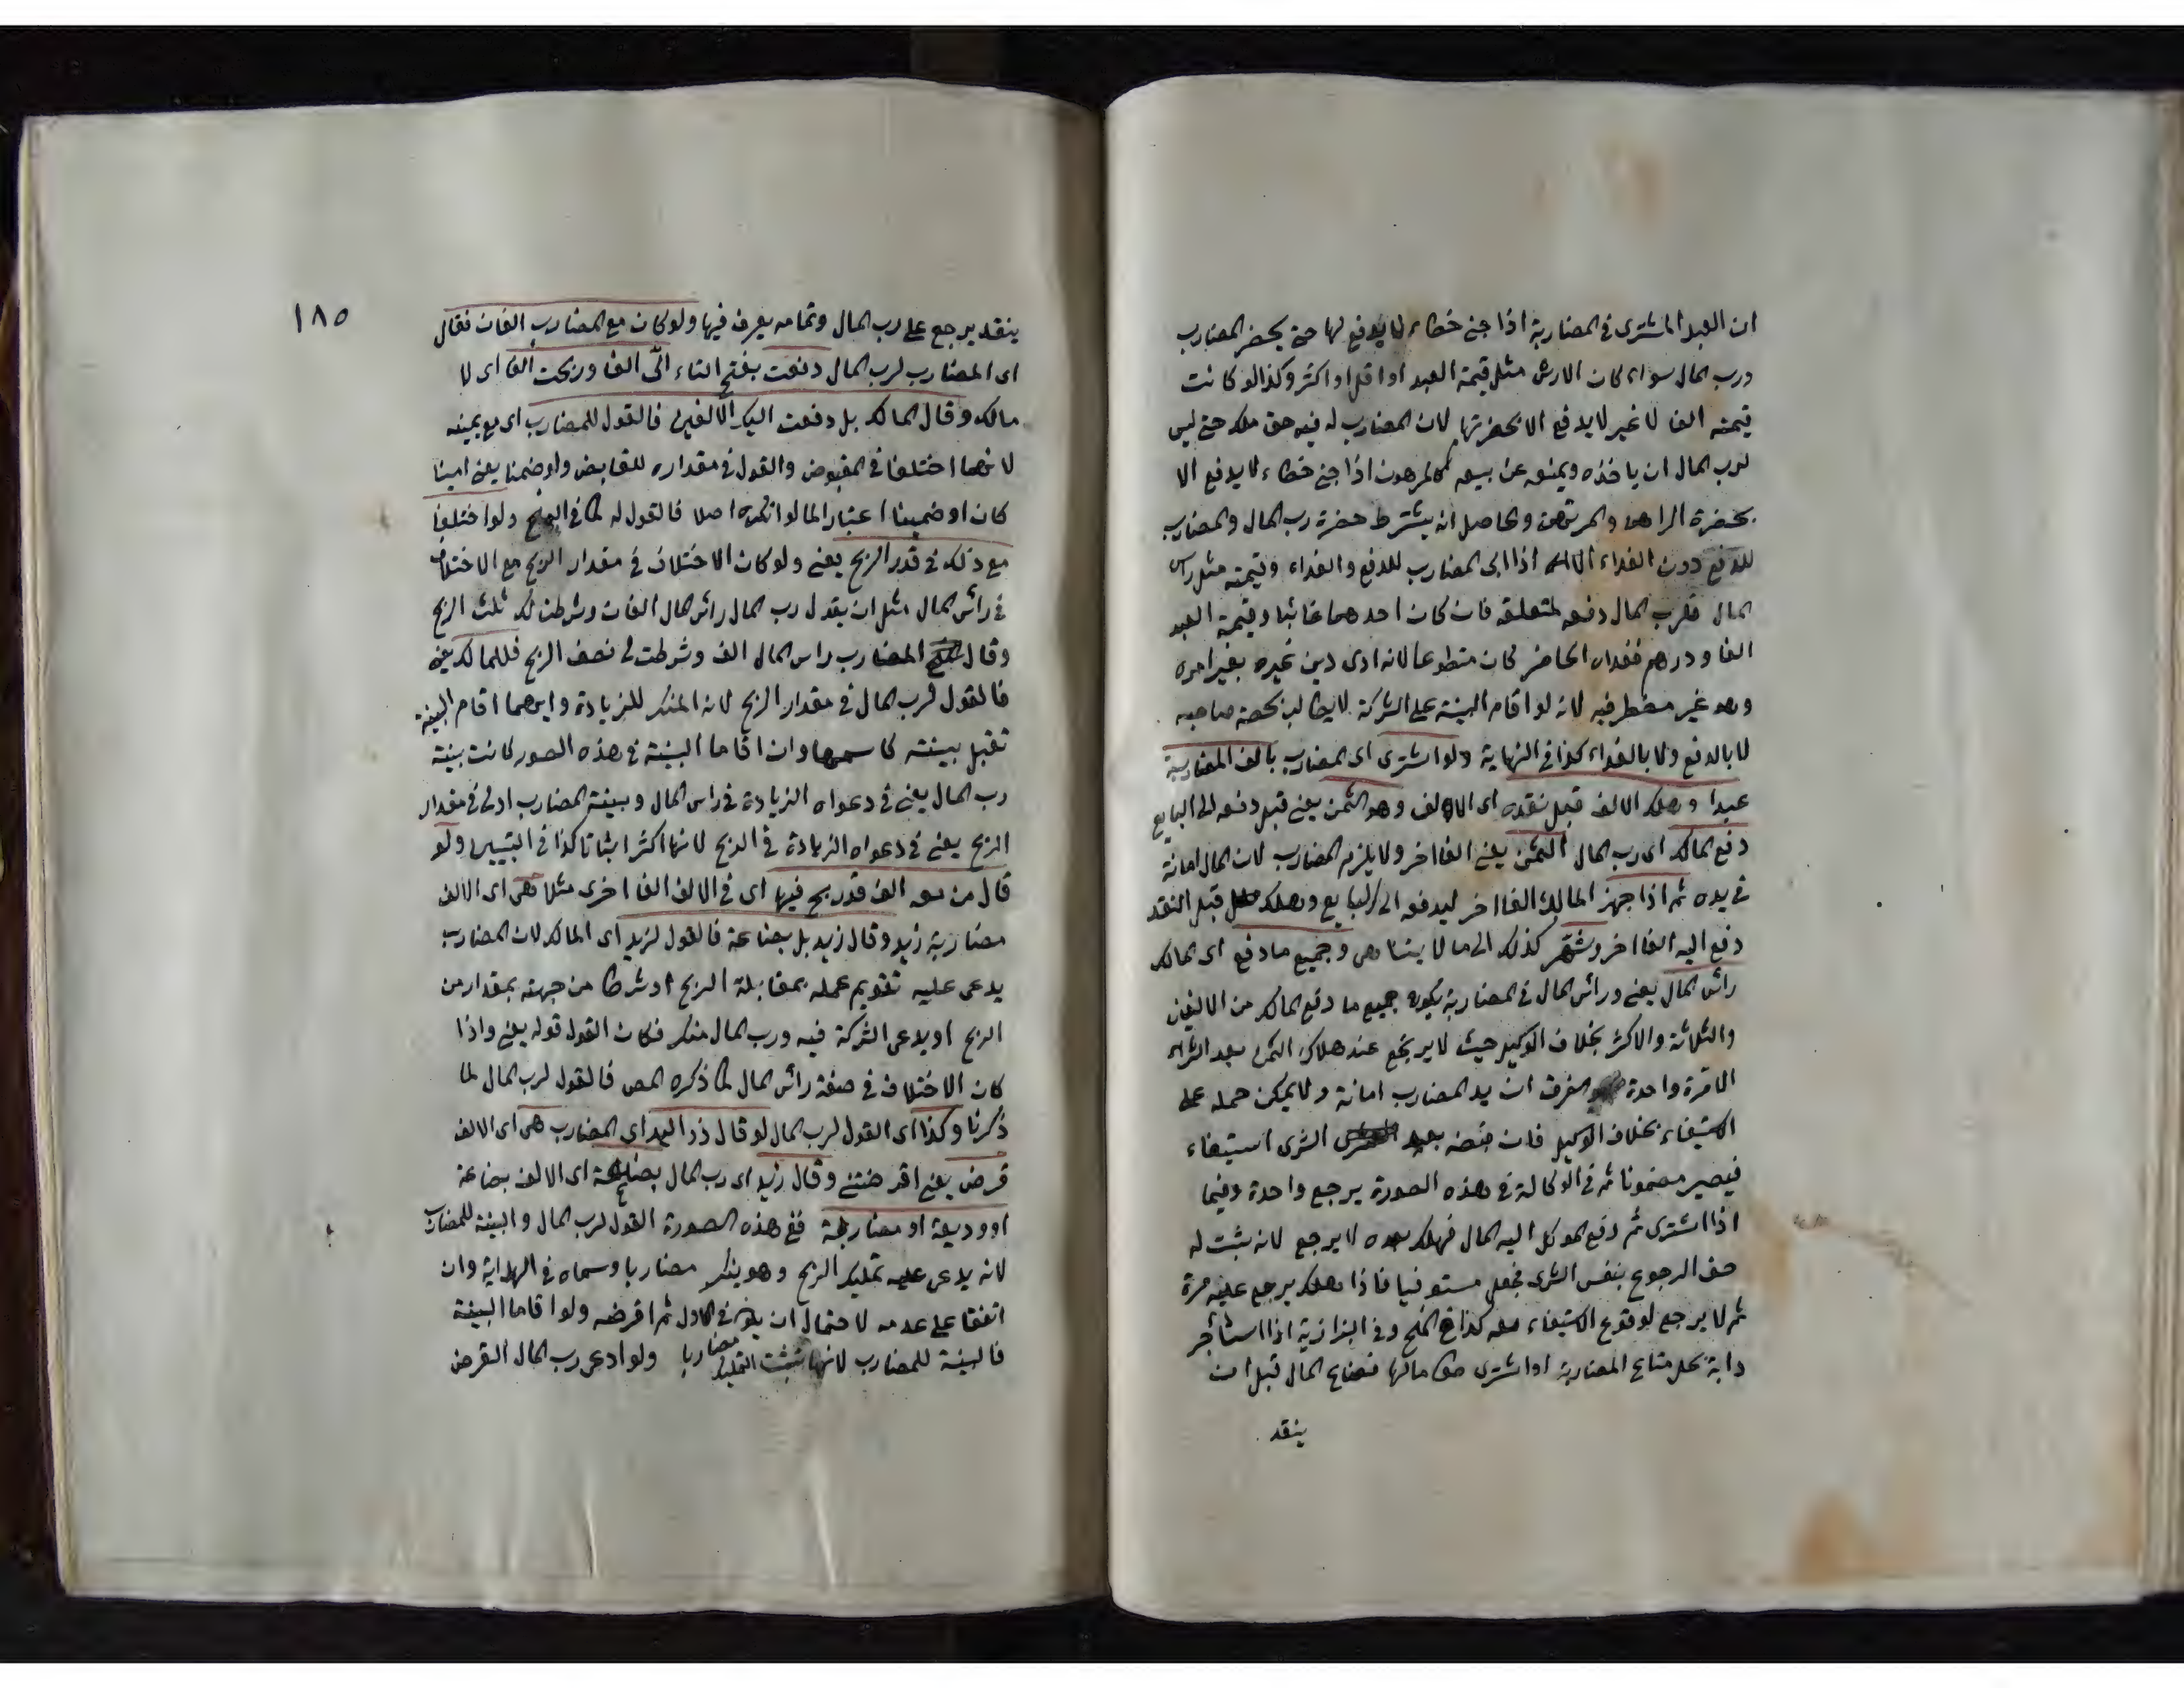 ان العبد المشترى فى المضاربة اذا جنى خطاء لا يدفع لها حتى يحضر المضارب
ورب المال سواء كان الارش مثل قيمة العبد او اقل او اكثر وكذا لو كانت
قيمته الفا لا غير لا يدفع الا بحضرتهما لان المضارب له فيه حق ملك حتى ليس
لرب المال ان ياخذه ويمنعه عن بيعه كالمرهون اذا جنى خطاء لا يدفع الا
بحضرة الراهن والمرتهن والحاصل انه يشترط حضرة رب المال والمضارب
للدفع دون الفداء الا اذا ابى المضارب للدفع والفداء وقيمته مثل راس
المال فلرب المال دفعه لتعلقه فان كان احدهما غائبا وقيمة العبد
الفا ودرهم ففداه الحاضر كان متطوعا لانه ادى دين غيره بغير امره
وهو غير مضطر فيه لانه لو اقام البينة على الشركة لا يطالب بحصة صاحبه
لا بالدفع ولا بالفداء كذا فى النهاية ولو اشترى اى المضارب بالف المضاربة
عبدا وهلك الالف قبل نقده اى الالف وهو الثمن يعنى قبل دفعه الى البايع
دفع المالك اى رب المال الثمن يعنى الفا اخر ولا يلزم المضارب لان المال امانة
فى يده ثم اذا جهز المالك الفا اخر ليدفعه الى البايع وهلك قبل النقد
دفع اليه الفا اخر وثم كذلك الى ما لا يتناهى وجميع ما دفع اى المالك
رأس المال يعنى ورأس المال فى المضاربة يكون جميع ما دفع المالك من الالفين
والثلاثة والاكثر بخلاف الوكيل حيث لا يرجع عند هلاك الثمن بعد الشراء
الا مرة واحدة والفرق ان يد المضارب امانة ولا يمكن حمله على
الاستيفاء بخلاف الوكيل فان قبضه بعد الشرى استيفاء
فيصير مضمونا ثم فى الوكالة فى هذه الصورة يرجع واحدة وفيما
اذا اشترى ثم دفع الموكل اليه المال فهلك بعده لا يرجع لانه ثبت له
حق الرجوع بنفس الشرى فجعل مستوفيا فاذا هلك يرجع عليه مرة
ثم لا يرجع لوقوع الاستيفاء كذا فى المنح وفى البزازية اذا استأجر
دابة يحمل متاع المضاربة او اشترى مالها فضاع المال قبل ان
ينقد
١٨٥
ينقد يرجع على رب المال وتمامه يعرف فيها ولو كان مع المضارب الفان فقال
اى المضارب لرب المال دفعت بفتح التاء الى الفا وربحت الفا اى لا
مالك وقال المالك بل دفعت اليك الالفين فالقول للمضارب اى مع يمينه
لانهما اختلفا فى المقبوض والقول فى مقداره للقابض ولو ضمنا يعنى امينا
كان او ضمينا اعتبارا لما لو انكره اصلا فالقول له كما فى المنح ولو اختلفا
مع ذلك فى قدر الربح يعنى ولو كان الاختلاف فى مقدار الربح مع الاختلاف
فى رأس المال مثل ان يقول رب المال رأس المال الفان وشرطت لك ثلث الربح
وقال المضارب راس المال الف وشرطت لى نصف الربح فللمالك يعنى
فالقول لرب المال فى مقدار الربح لانه المنكر للزيادة وايهما اقام البينة
تقبل بينته كاسمها وان اقاما البينة فى هذه الصور كانت بينة
رب المال يعنى فى دعواه الزيادة فى راس المال وبينة المضارب اولى فى مقدار
الربح يعنى فى دعواه الزيادة فى الربح لانها اكثر اثباتا كذا فى التبيين ولو
قال من معه الف قد ربح فيها اى فى الالف الفا اخرى مثلا هى اى الالف
مضاربة زيد وقال زيد بل بضاعة فالقول لزيد اى المالك لان المضارب
يدعى عليه تقويم عمله بمقابلة الربح او شرطا من جهته بمقدار من
الربح او يدعى الشركة فيه ورب المال منكر فكان القول قوله يعنى واذا
كان الاختلاف فى صفة رأس المال كما ذكره المص فالقول لرب المال لما
ذكرنا وكذا اى القول لرب المال لو قال ذو اليد اى المضارب هى اى الالف
قرض يعنى اقرضتنى وقال زيد اى رب المال بضاعة اى الالف بضاعة
او وديعة او مضاربة ففى هذه الصورة القول لرب المال والبينة للمضارب
لانه يدعى عليه تمليك الربح وهو ينكر مضاربا وسماه فى الهداية وان
اتفقا على عدمه لاحتمال ان يكون فى الاول ثم اقرضه ولو اقاما البينة
فالبينة للمضارب لانها تثبت التمليك مضاربا ولو ادعى رب المال القرض